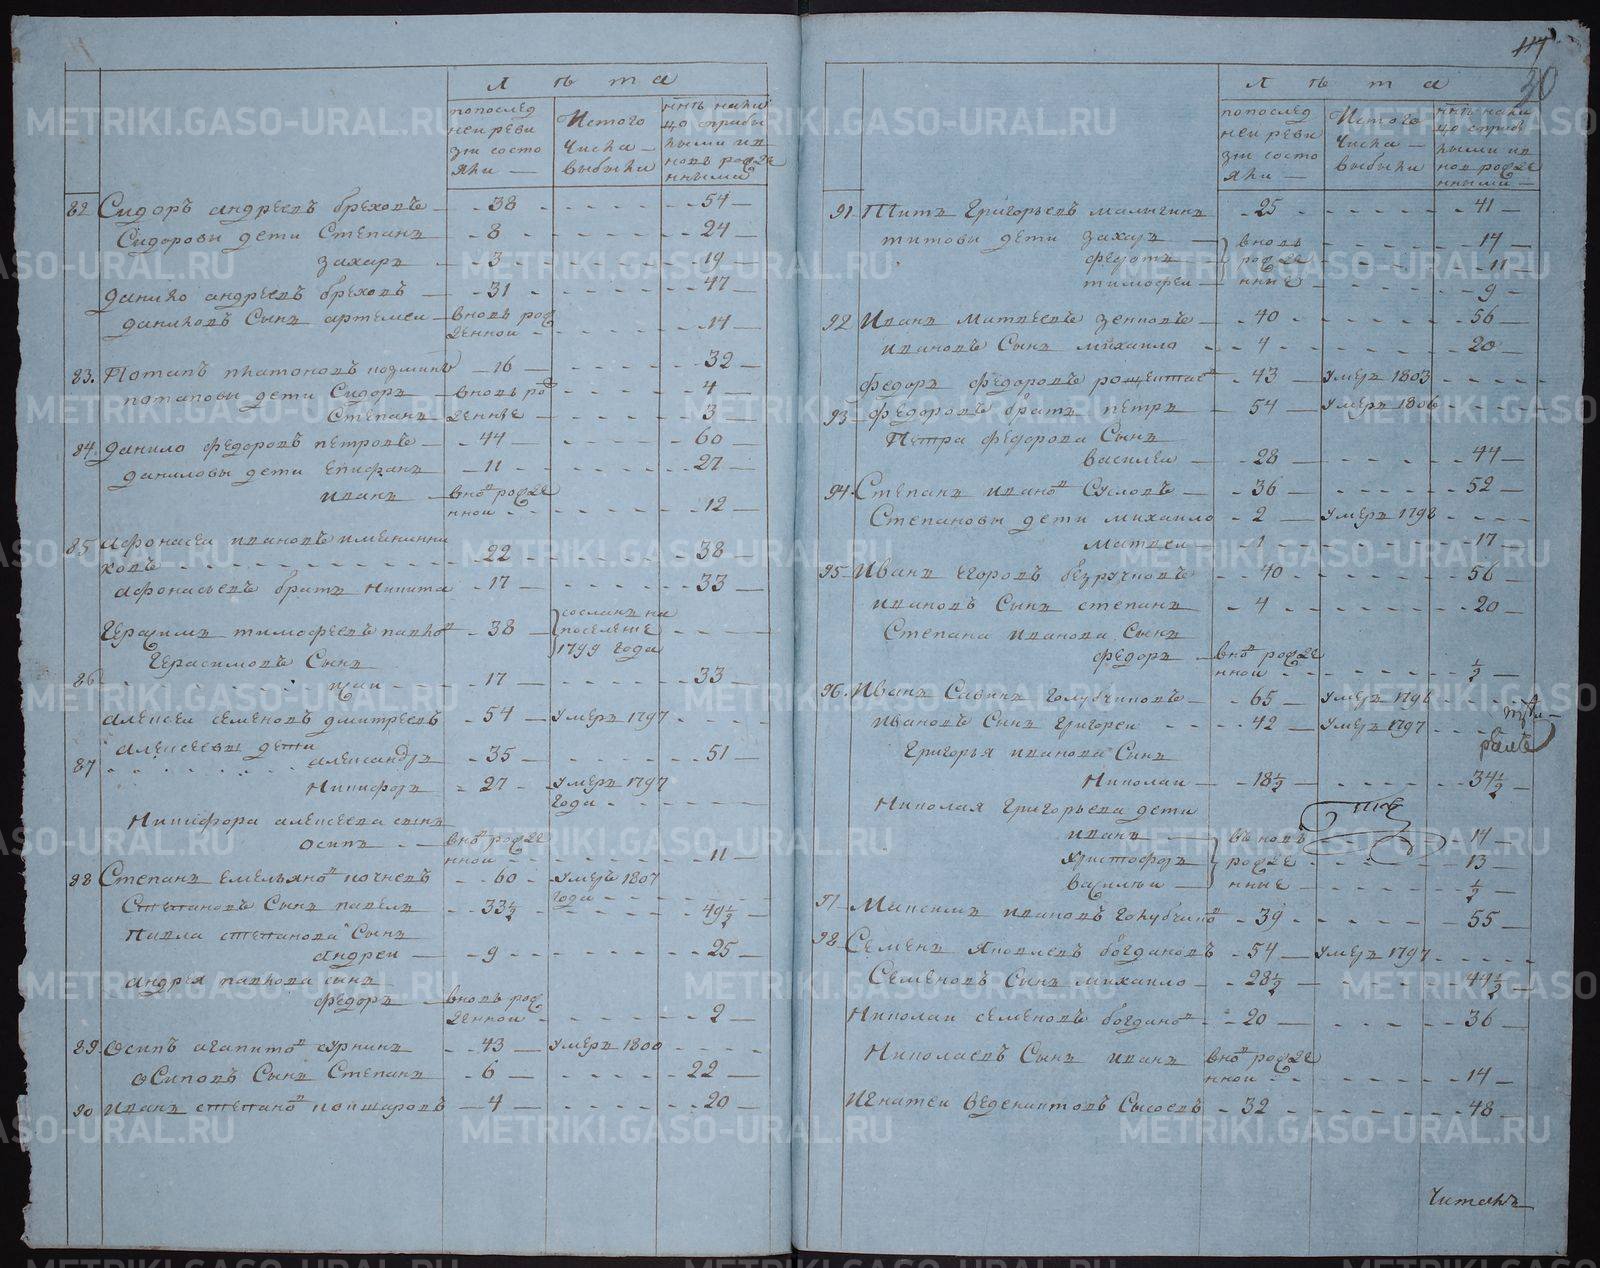 Лѣта
попослед
неи реви
зіи состо
яли —
Истого
числа —
выбыли
ннѣ нали
цо сприбы
лыми и в
новь рожде
нными
82 Сидоръ андреевъ бреховъ — 38 — 54 —
Сидоровы дети Степанъ — 8 — 24 —
захаръ — 3 — 19 —
данило андреевъ бреховъ — 31 — 47 —
даниловъ Сынъ артемеи — вновь рож
денной — 14 —
83. Потапъ платоновъ — 16 — 32 —
потаповы дети Сидоръ вновь ро — 4 —
Степанъ денные — 3 —
84. данило федоровъ петровъ — 44 — 60 —
даниловы дети епифанъ — 11 — 27 —
иванъ — вно в рожде
нной — 12 —
85 Афонасеи ивановъ именинни
ковъ — 22 — 38 —
афонасьевъ братъ никита — 17 — 33 —
Герасимъ тимофеевъ павло в — 38 — сосланъ на
поселение
1799 года
Герасимовъ Сынъ
86 — 17 — 33 —
алексеи семеновъ дмитреевъ — 54 — умеръ 1797
алексеевы дети
87 александръ — 35 — 51 —
Никифоръ — 27 — умеръ 1797
года
Никифора алексеева сынъ
осипъ — вно в рожде
нной — 11 —
88 Степанъ емельяно в кочневъ — 60 — умеръ 1807
года
Степановъ Сынъ павелъ — 33½ — 49½
Павла степанова Сынъ
андреи — 9 — 25 —
андрея павлова сынъ
федоръ — вновь рож
денной — 2 —
89. осипъ агапито в — 43 — умеръ 1800
осиповъ Сынъ Степанъ — 6 — 22 —
90 иванъ степано в — 4 — 20 —
117
20
Лѣта
попослед
неи реви
зіи состо
яли —
Истого
числа —
выбыли
ннѣ нали
цо сприбы
лыми и в
новь рожде
нными —
91 Титъ Григорьевъ малыгинъ — 25 — 41 —
титовы дети захаръ — вновь — 14 —
федотъ рожде — 11 —
тимофеи — нные — 9 —
92 Иванъ Матвеевъ — 40 — 56 —
ивановъ Сынъ михаило — 4 — 20 —
федоръ федоровъ — 43 — умеръ 1803
93 федоровъ братъ петръ — 54 — умеръ 1806
Петра федорова Сынъ
василеи — 28 — 44 —
94. Степанъ ивано в Сусловъ — 36 — 52 —
Степановы дети михаило — 2 — умеръ 1798
матвеи — 1 — 17 —
95 Иванъ егоровъ безручковъ — 40 — 56 —
ивановъ Сынъ степанъ — 4 — 20 —
Степана иванова Сынъ
федоръ — вно в рожде
нной — ½
96. Иванъ Савинъ голубчиковъ — 65 — умеръ 1798
ивановъ Сынъ григореи — 42 — умеръ 1797
Григорья иванова Сынъ
Николаи — 18½ — 34½
Николая Григорьева дети
иванъ — въновь — 14 —
христофоръ рожде — 13 —
василеи — нные — ½
97 Максимъ ивановъ голубчико в — 39 — 55 —
98 Семенъ яковлевъ богдановъ — 54 — умеръ 1797
Семеновъ Сынъ михаило — 28½ — 44½
Николаи семеновъ богдано в — 20 — 36 —
Николаевъ Сынъ иванъ вно в рожде
нной — 14 —
Игнатеи веденихтовъ Сысоевъ — 32 — 48 —
Читалъ
METRIKI.GASO-URAL.RU